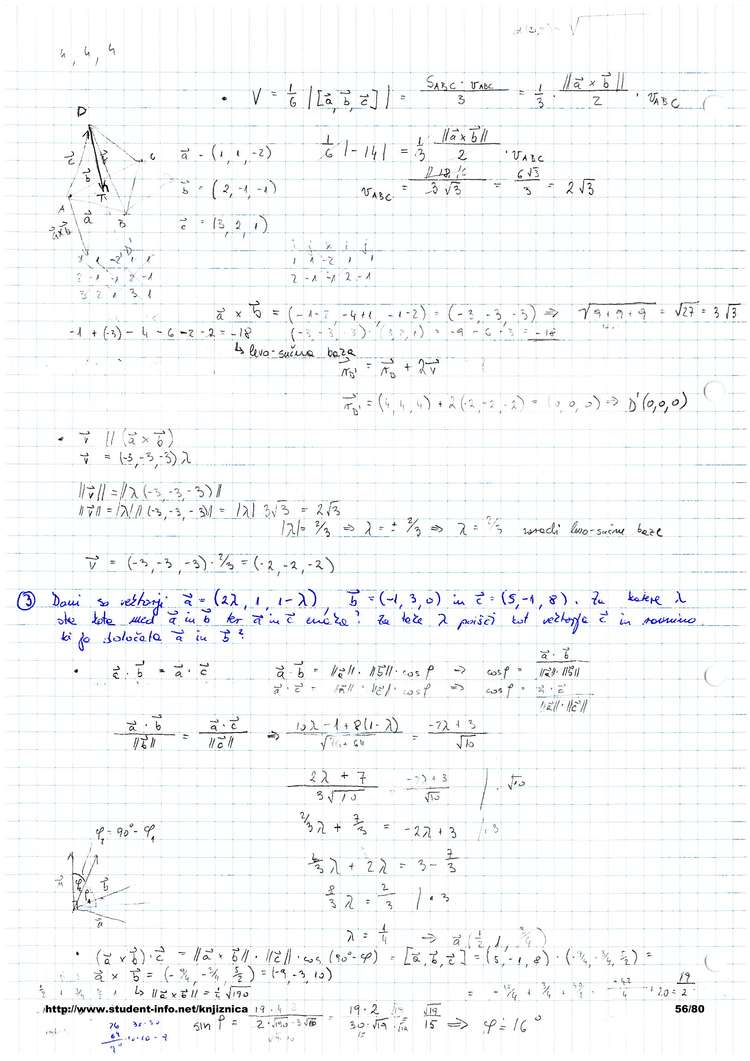 4, 4, 4
• V = 1/6 |[a⃗, b⃗, c⃗]| = S_ABC · v_ABC / 3 = 1/3 · ||a⃗ × b⃗|| / 2 · v_ABC
D
a⃗ = (1, 1, -2)
b⃗ = (2, -1, -1)
c⃗ = (3, 2, 1)
1/6 |-14| = 1/3 ||a⃗×b⃗|| / 2 · v_ABC
v_ABC = 3√3 = 6√3 / 3 = 2√3
A
B
T
a⃗×b⃗
1 1 -2 1 1
2 -1 -1 2 -1
3 2 1 3 1
1 1 -2 1 1
2 -1 -1 2 -1
a⃗ × b⃗ = (-1-2, -4+1, -1-2) = (-3, -3, -3) ⇒ √9+9+9 = √27 = 3√3
-1 + (-3) - 4 - 6 - 2 - 2 = -18 (-3, -3, 3) · (3, 2, 1) = -9 - 6 - 3 = -18
↳ levo-sučna baza
r⃗_D' = r⃗_D + 2v⃗
r⃗_D' = (4, 4, 4) + 2(-2, -2, -2) = (0, 0, 0) ⇒ D'(0,0,0)
• v⃗ || (a⃗ × b⃗)
v⃗ = (-3, -3, -3) λ
||v⃗|| = ||λ (-3, -3, -3)||
||v⃗|| = |λ| ||(-3, -3, -3)|| = |λ| 3√3 = 2√3
|λ| = 2/3 ⇒ λ = ± 2/3 ⇒ λ = 2/3 zaradi levo-sučne baze
v⃗ = (-3, -3, -3) · 2/3 = (-2, -2, -2)
③ Dani so vektorji a⃗ = (2λ, 1, 1-λ), b⃗ = (-1, 3, 0) in c⃗ = (5, -1, 8). Za katere λ
sta kota med a⃗ in b⃗ ter a⃗ in c⃗ enaka? Za take λ poišči kot vektorja c⃗ in ravnino
ki jo določata a⃗ in b⃗?
• c⃗ · b⃗ = a⃗ · c⃗ a⃗ · b⃗ = ||a⃗|| · ||b⃗|| · cos φ → cos φ = a⃗ · b⃗ / ||a⃗|| · ||b⃗||
a⃗ · c⃗ = ||a⃗|| · ||c⃗|| · cos φ ⇒ cos φ = a⃗ · c⃗ / ||a⃗|| · ||c⃗||
a⃗ · b⃗ / ||b⃗|| = a⃗ · c⃗ / ||c⃗|| ⇒ 10λ - 1 + 8(1-λ) = -2λ + 3 / √10
2λ + 7 / 3√10 -2λ + 3 / √10 / · √10
2/3 λ + 7/3 = -2λ + 3 / · 3
λ + 2λ = 3 - 7/3
8/3 λ = 2/3 / · 3
λ = 1/4 → a⃗ (1/2, 1, 3/4)
φ₂ = 90° - φ₁
n⃗
b⃗
a⃗
• (a⃗ × b⃗) · c⃗ = ||a⃗ × b⃗|| · ||c⃗|| · cos (90° - φ) = [a⃗, b⃗, c⃗] = (5, -1, 8) · (-9/4, -3/4, 5/2) =
a⃗ × b⃗ = (-9/4, -3/4, 5/2) = (-9, -3, 10)
↳ ||a⃗ × b⃗|| = 1/4 √190
19/2
sin φ = 19 · 2 / 30 · √19 = √19 / 15 ⇒ φ = 16°
http://www.student-info.net/knjiznica
56/80